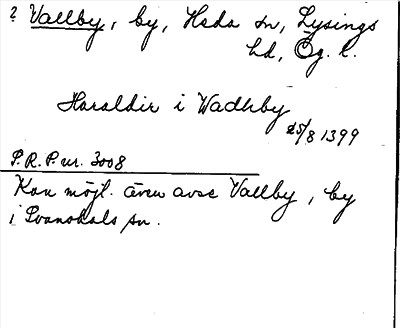 ? Vallby, by, Heda sn, Lysings
hd, Ög. l.
Haraldir i Wadhby
25/8 1399
P.R.P. nr. 3008
Kan möjl. även avse Vallby, by
i Svanshals sn.